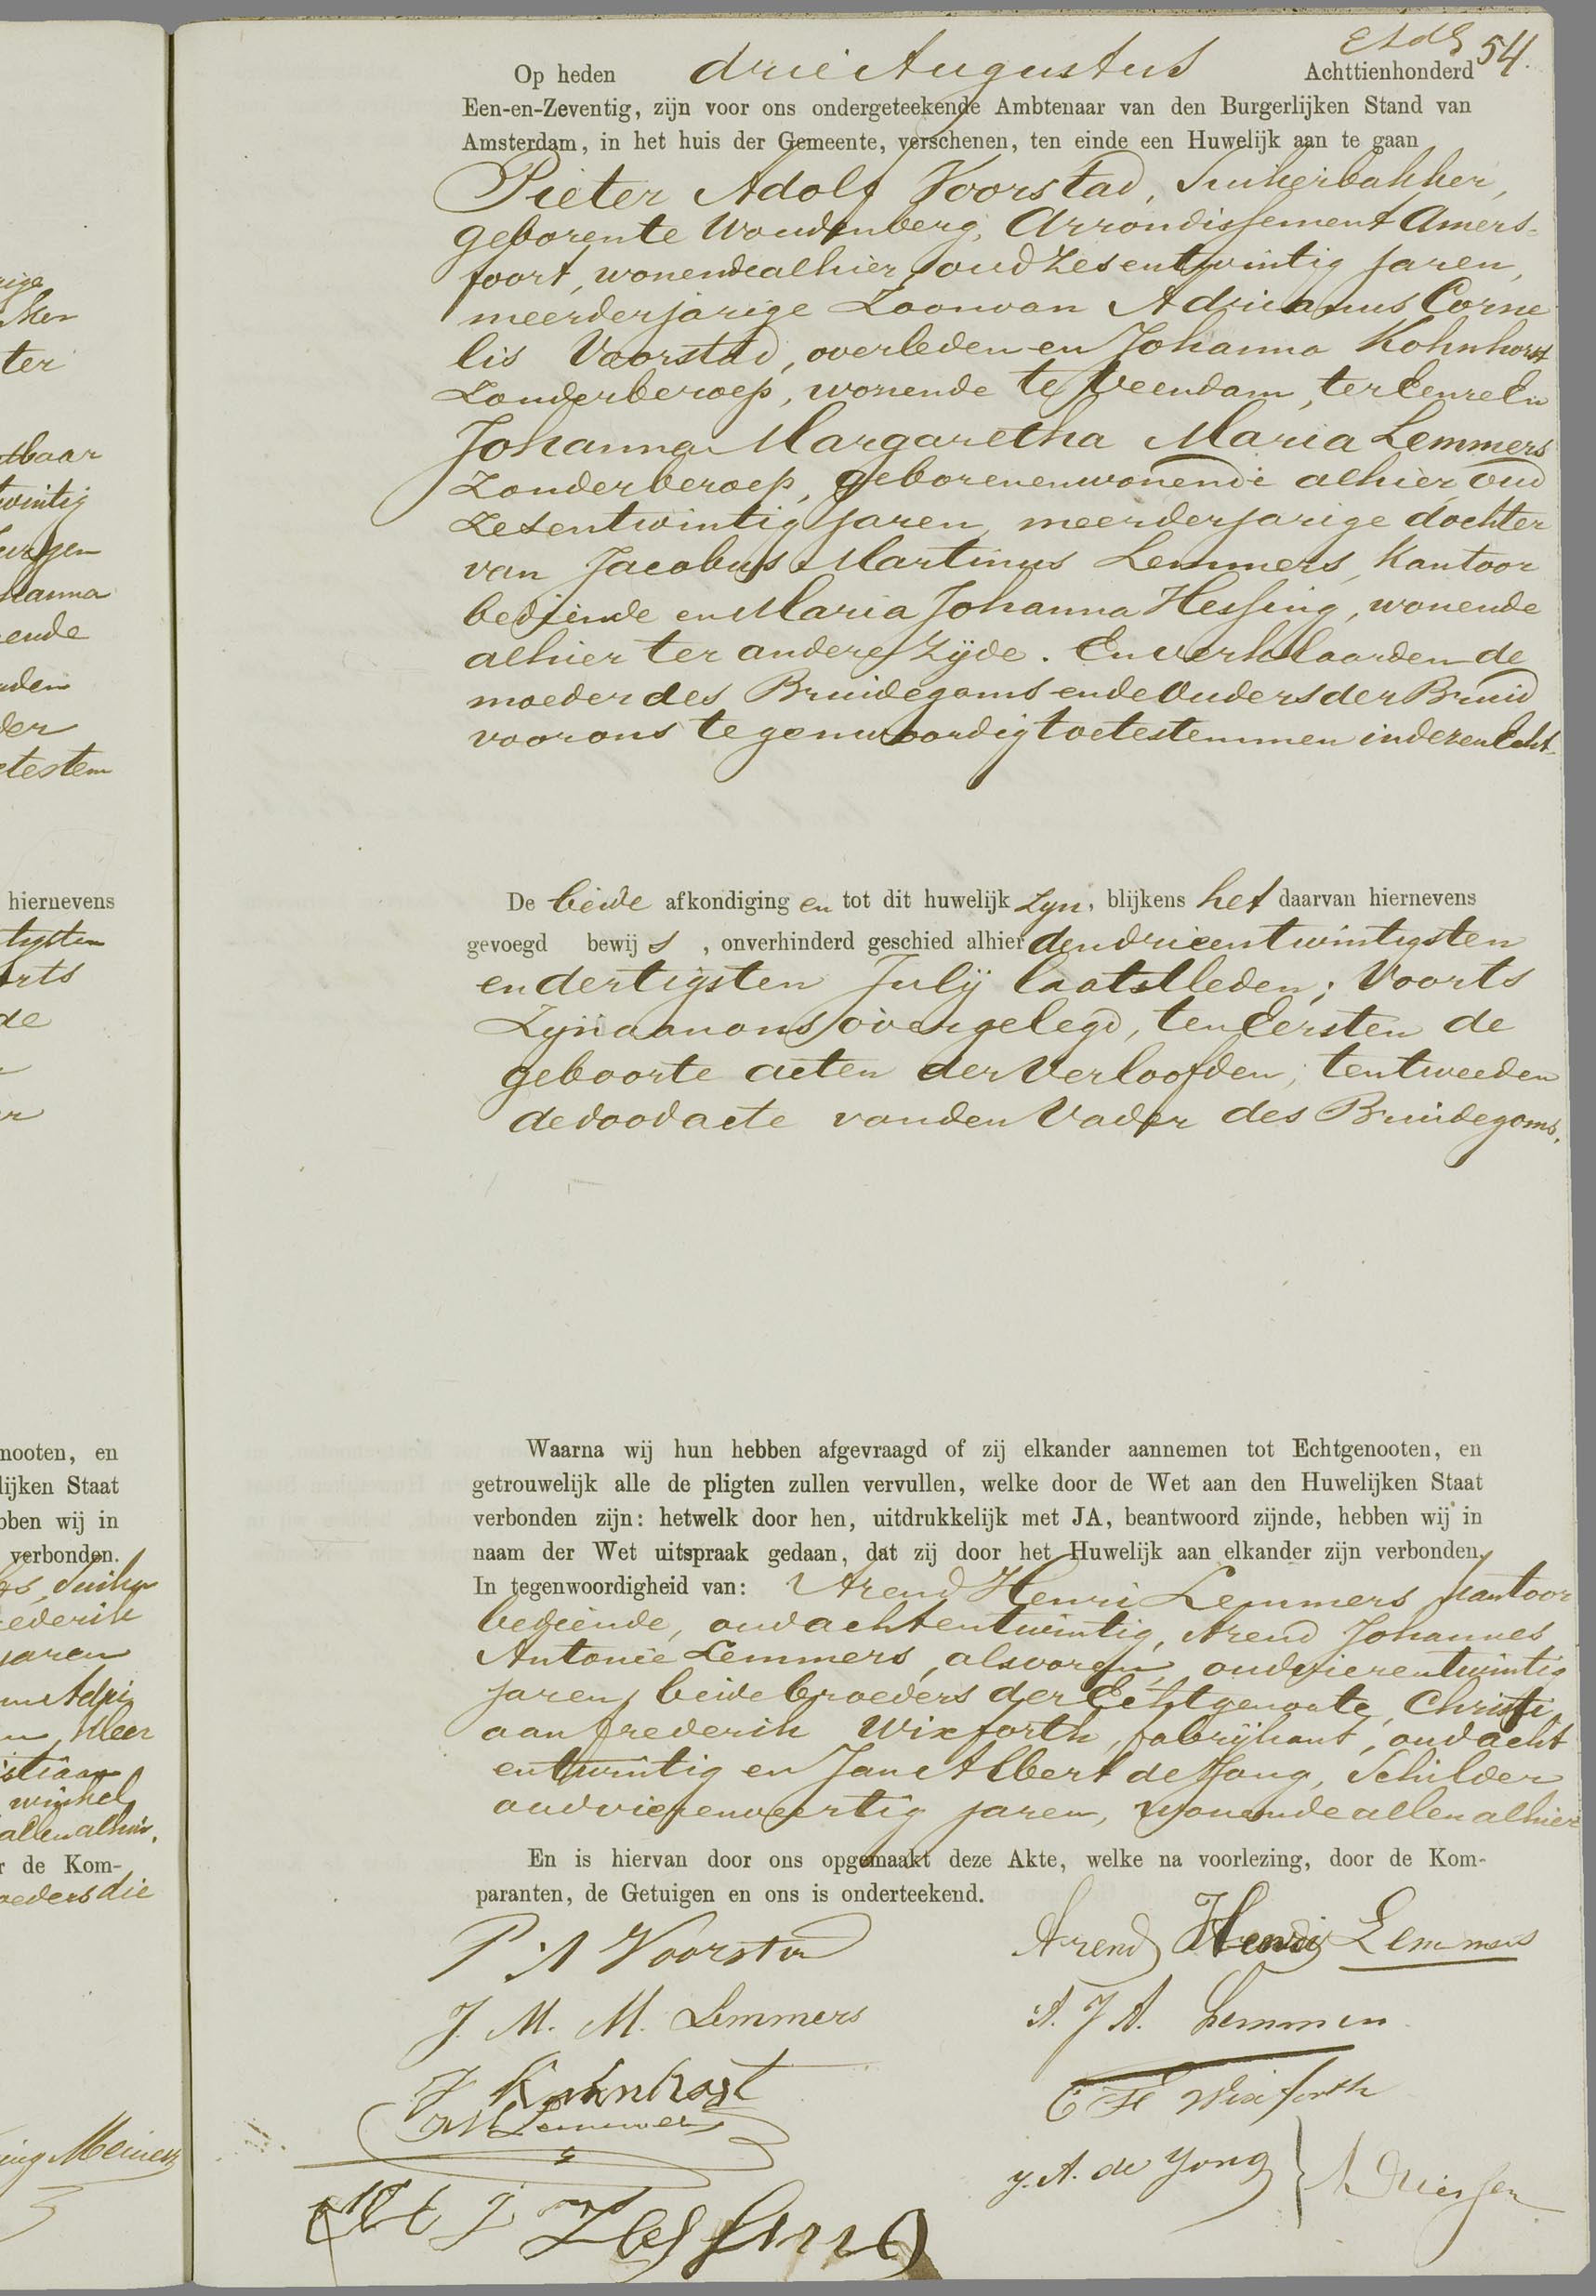 54.
Op heden drie Augustus Achttienhonderd
Een-en-Zeventig, zijn voor ons ondergeteekende Ambtenaar van den Burgerlijken Stand van
Amsterdam, in het huis der Gemeente, verschenen, ten einde een Huwelijk aan te gaan
Pieter Adolf Voorstad, Suikerbakker,
geboren te Woudenberg, Arrondissement Amers-
foort, wonende alhier, oud zesentwintig jaren,
meerderjarige Zoon van Adrianus Corne
lis Voorstad, overleden en Johanna Kohnhorst
Zonder beroep, wonende te Veendam, ter Eenre En
Johanna Margaretha Maria Lemmers
Zonder beroep, geboren en wonende alhier, oud
zesentwintig jaren, meerderjarige dochter
van Jacobus Martinus Lemmers, Kantoor
bediende en Maria Johanna Hessing, wonende
alhier ter andere Zijde. En verklaarden de
moeder des Bruidegoms en de Ouders der Bruid
voor ons tegenwoordig toetestemmen in dezen Echt-
De beide afkondiging en tot dit huwelijk zyn, blijkens het daarvan hiernevens
gevoegd bewij s, onverhinderd geschied alhier den drieentwintigsten
en dertigsten Julij laatstleden; Voorts
Zijn aan ons overgelegd, ten Eersten de
geboorte acten der Verloofden, ten tweeden
de doodacte van den Vader des Bruidegoms.
Waarna wij hun hebben afgevraagd of zij elkander aannemen tot Echtgenooten, en
getrouwelijk alle de pligten zullen vervullen, welke door de Wet aan den Huwelijken Staat
verbonden zijn: hetwelk door hen, uitdrukkelijk met JA, beantwoord zijnde, hebben wij in
naam der Wet uitspraak gedaan, dat zij door het Huwelijk aan elkander zijn verbonden.
In tegenwoordigheid van: Arend Henri Lemmers Kantoor
bediende, oud achtentwintig, Arend Johannes
Antonie Lemmers, als voren, oud vierentwintig
jaren, beide broeders der Echtgenoote, Christi
aan Frederik Wixforth, fabrijkant, oud acht
entwintig en Jan Albert de Jong, Schilder
oud vierenveertig jaren, wonende allen alhier
En is hiervan door ons opgemaakt deze Akte, welke na voorlezing, door de Kom-
paranten, de Getuigen en ons is onderteekend.
P A Voorstad
Arend Henri Lemmers
J. M. M. Lemmers
A. J A. Lemmers
J Kohnhorst
C F Wixforth
J M Lemmers
J. A. de Jong
M J Hessing